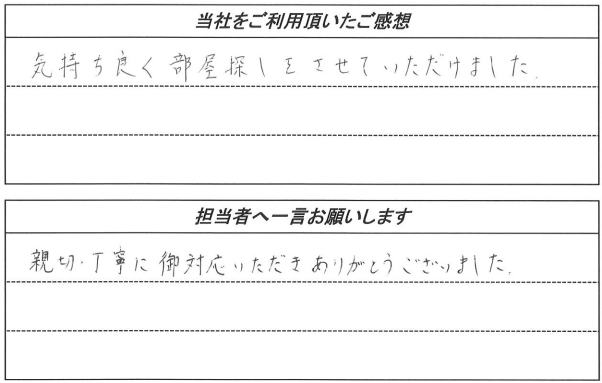 当社をご利用頂いたご感想
気持ち良く部屋探しをさせていただけました.
担当者へ一言お願いします
親切・丁寧に御対応いただきありがとうございました.